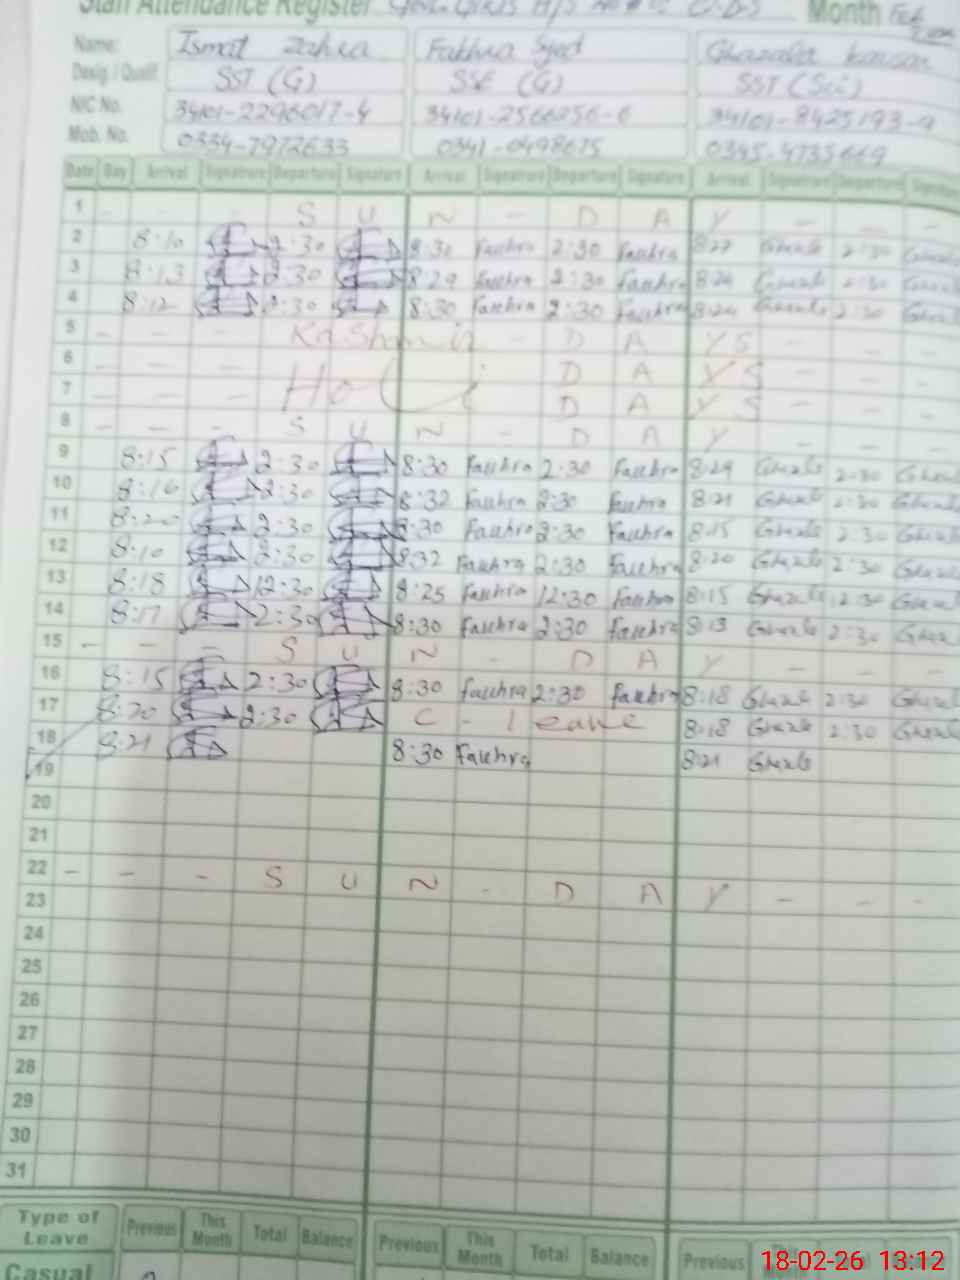 Staff Attendance Register Month Feb
Name: Ismat Zahra Fakhra Syed Ghazala Kousar
Desig. / Qualif. SST (G) SSE (G) SST (Sci)
NIC No. 34101-2296017-4 34101-2566256-6 34101-8425193-9
Mob. No. 0334-7972633 0341-0498675 0345-4735669
Date Day Arrival Signature Departure Signature Arrival Signature Departure Signature Arrival Signature Departure
1 - - - S U N - D A Y - - -
2 8:10 2:30 8:30 Fakhra 2:30 Fakhra 8:27 Ghazala 2:30
3 8:13 2:30 8:29 Fakhra 2:30 Fakhra 8:24 Ghazala 2:30
4 8:12 2:30 8:30 Fakhra 2:30 Fakhra 8:24 Ghazala 2:30
5 - - - Kashmir - D A Y S - - -
6 - - - D A Y S - - -
7 - - - Holi D A Y S - - -
8 - - - S U N - D A Y - - -
9 8:15 2:30 8:30 Fakhra 2:30 Fakhra 8:24 Ghazala 2:30
10 8:16 2:30 8:32 Fakhra 2:30 Fakhra 8:21 Ghazala 2:30
11 8:20 2:30 8:30 Fakhra 2:30 Fakhra 8:15 Ghazala 2:30
12 8:10 2:30 8:32 Fakhra 2:30 Fakhra 8:20 Ghazala 2:30
13 8:18 12:30 8:25 Fakhra 12:30 Fakhra 8:15 Ghazala 12:30
14 8:17 2:30 8:30 Fakhra 2:30 Fakhra 8:13 Ghazala 2:30
15 - - - S U N - D A Y - - -
16 8:15 2:30 8:30 Fakhra 2:30 Fakhra 8:18 Ghazala 2:30
17 8:20 2:30 C - leave 8:18 Ghazala 2:30
18 8:21 8:30 Fakhra 8:21 Ghazala
19
20
21
22 - - - S U N - D A Y - - -
23
24
25
26
27
28
29
30
31
Type of Leave Previous This Month Total Balance Previous This Month Total Balance Previous This
Casual
18-02-26 13:12